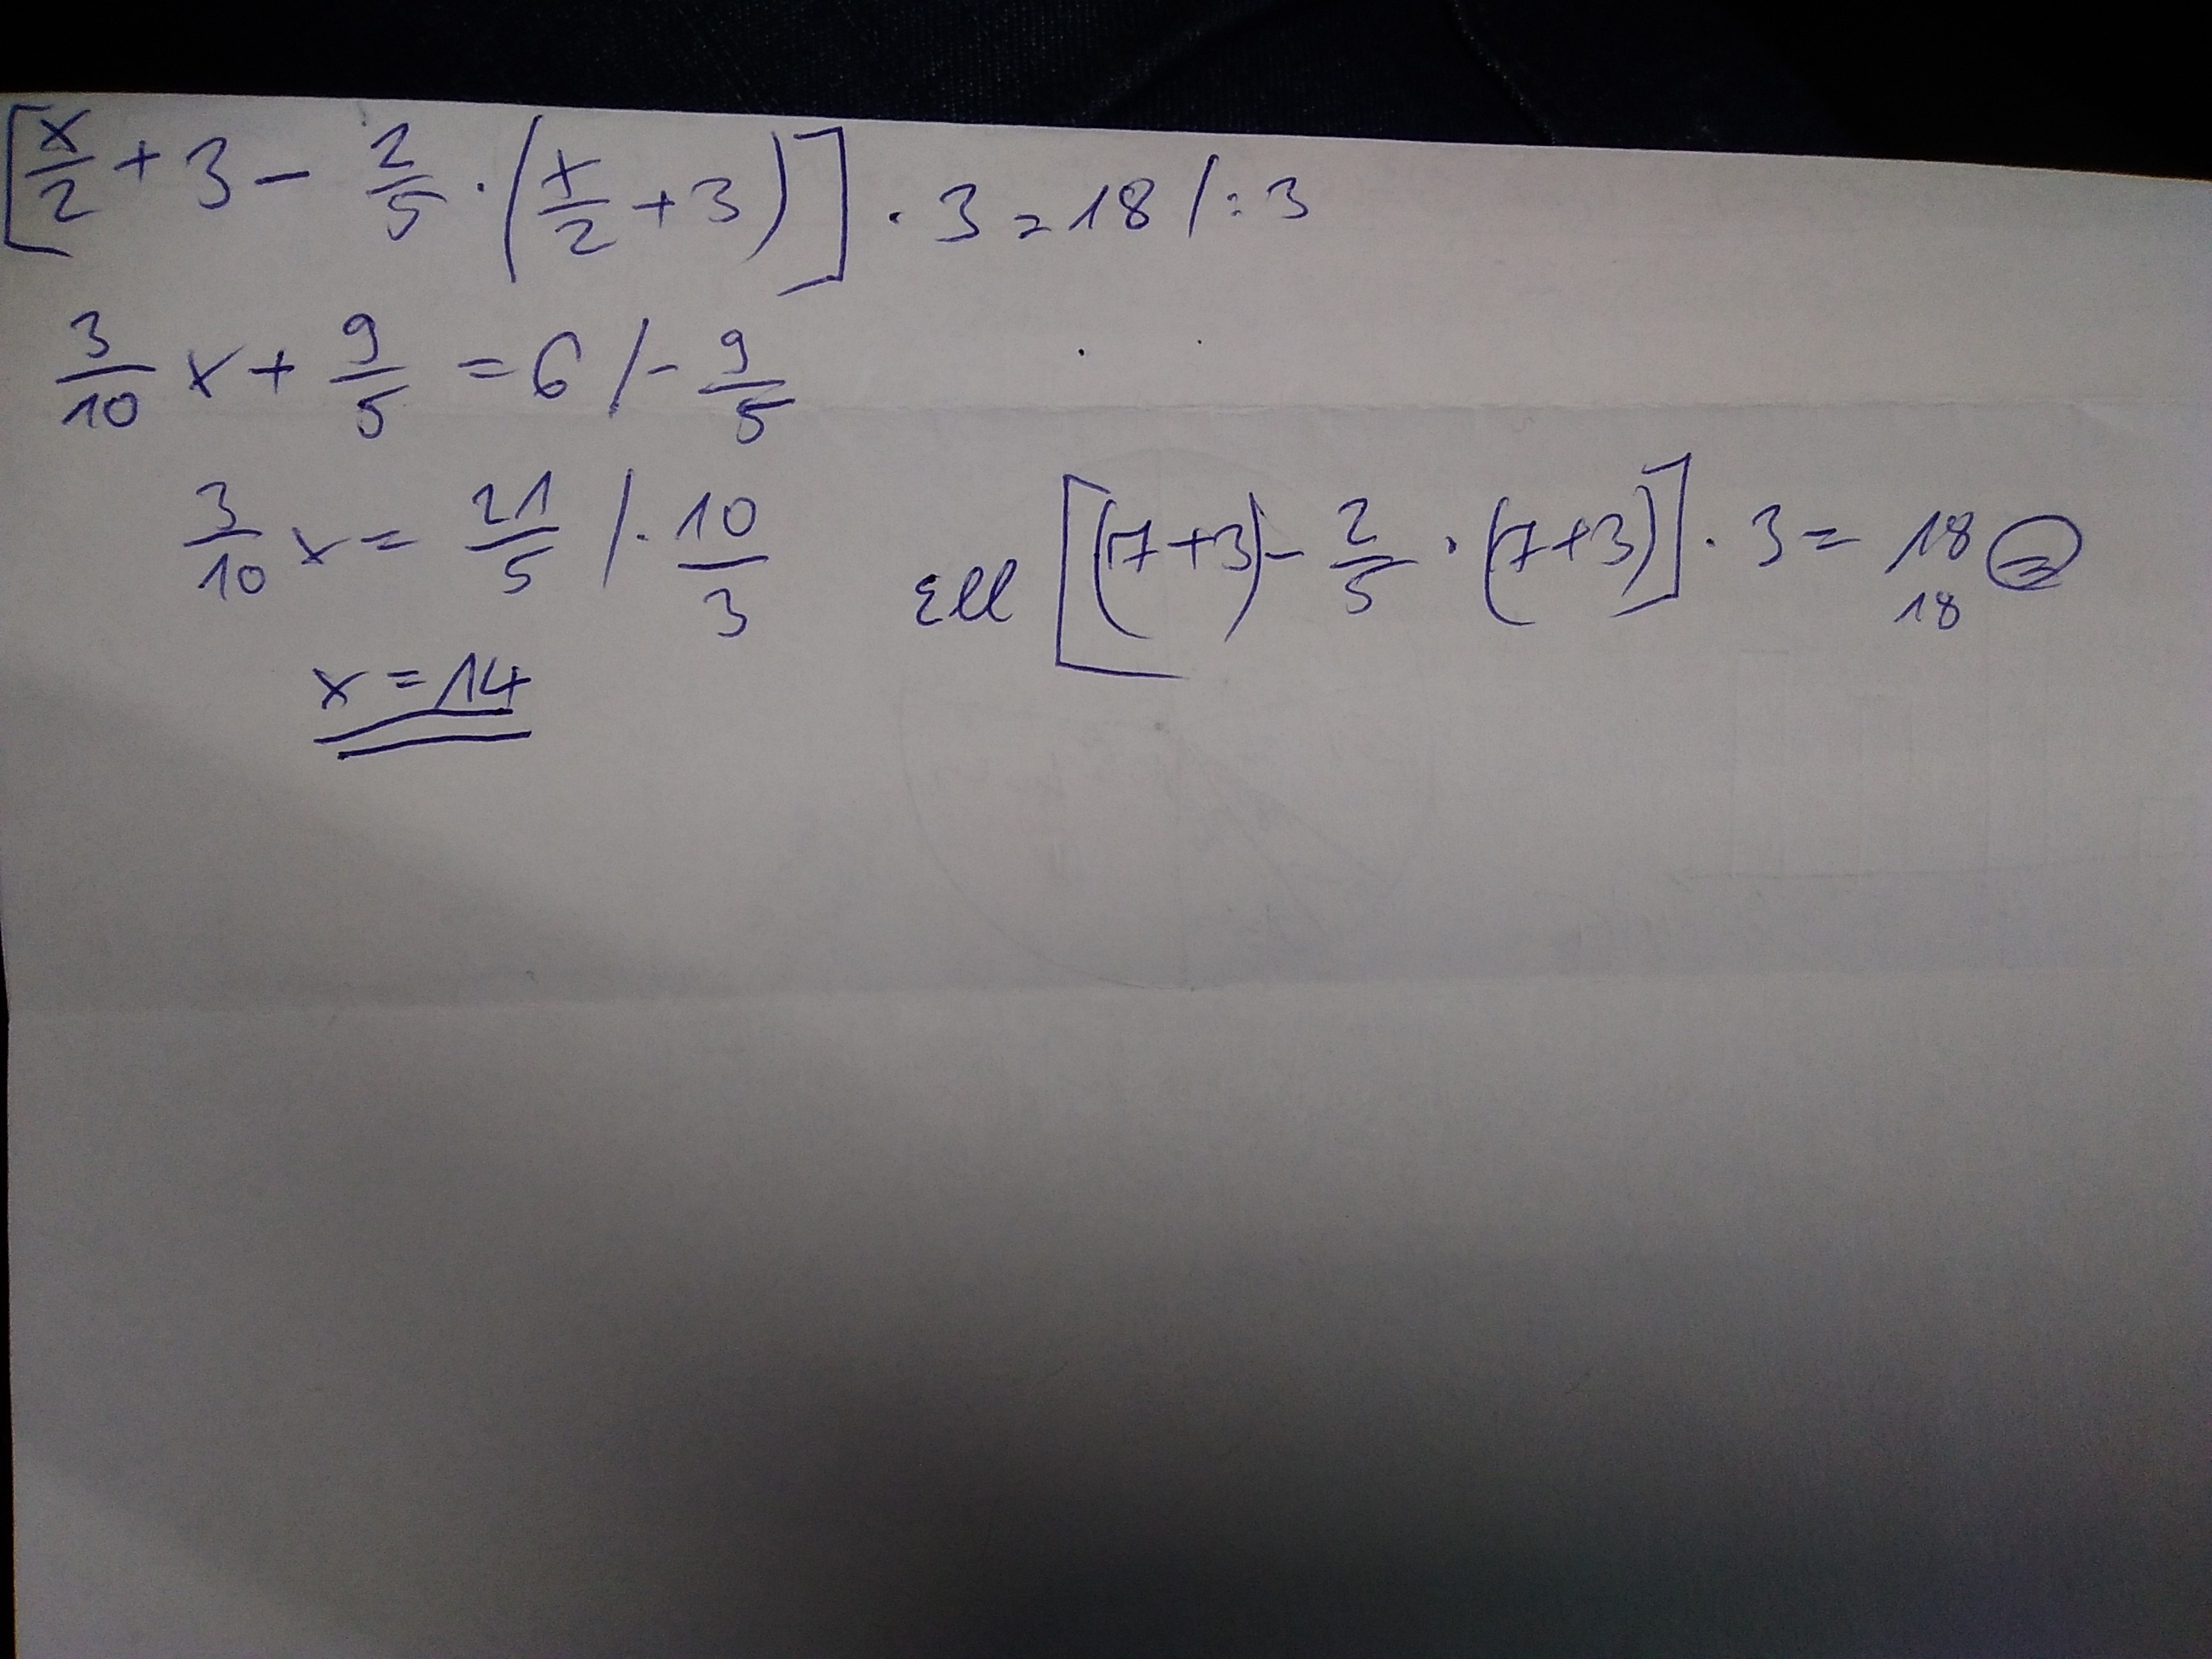 [x/2 + 3 - 2/5 · (x/2 + 3)] · 3 = 18 /:3
3/10 x + 9/5 = 6 /- 9/5
3/10 x = 21/5 /· 10/3
Ell [(7+3) - 2/5 · (7+3)] · 3 = 18
18
x = 14